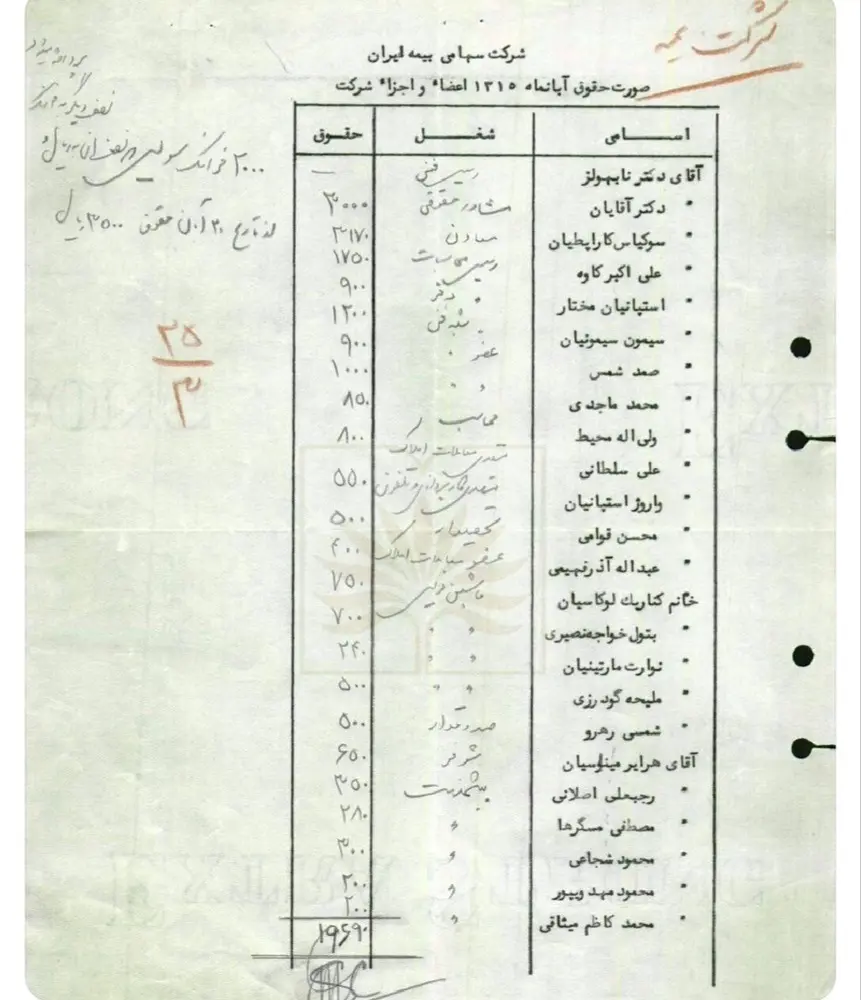 شرکت بیمه
شرکت سهامی بیمه ایران
صورت حقوق آبانماه ۱۳۱۵ اعضاء و اجزاء شرکت
اسامی شغل حقوق
آقای دکتر نایهولز رئیس فنی —
" دکتر آقایان مشاور حقوقی ۳۰۰۰
" سوکیاس کاراپطیان معاون ۳۱۷۰
" علی اکبر کاوه رئیس محاسبات ۱۷۵۰
" استپانیان مختار " دفتر ۹۰۰
" سیمون سیمونیان " شعبه فنی ۱۲۰۰
" صمد شمس عضو " ۹۰۰
" محمد ماجدی " " ۱۰۰۰
" ولی اله محیط محاسب ۸۵۰
" علی سلطانی متصدی معاملات املاک ۸۰۰
" واروژ استپانیان متصدی و تلفون ۵۵۰
" محسن قوامی تحصیلدار ۵۰۰
" عبداله آذرفهیمی عضو معاملات املاک ۴۰۰
خانم کتاریك لوکاسیان ماشین نویس ۷۵۰
" بتول خواجه نصیری " " ۷۰۰
" نوارت مارتینیان " " ۲۴۰
" ملیحه گودرزی " " ۵۰۰
" شمسی رهرو صندوقدار ۵۰۰
آقای هرایر میناسیان شوفر ۶۵۰
" رجبعلی اصلانی پیشخدمت ۳۵۰
" مصطفی مسگرها " ۲۸۰
" محمود شجاعی " ۳۰۰
" محمود مهدوپور " ۲۰۰
" محمد کاظم میثاقی " ۲۰۰
۱۹۶۹۰
نصف دیگر به فرانک
۲۰۰۰ فرانک سویس که نصف آن به ریال
از تاریخ ۳۰ آبان حقوق ۳۵۰۰ ریال
۲۵
۳